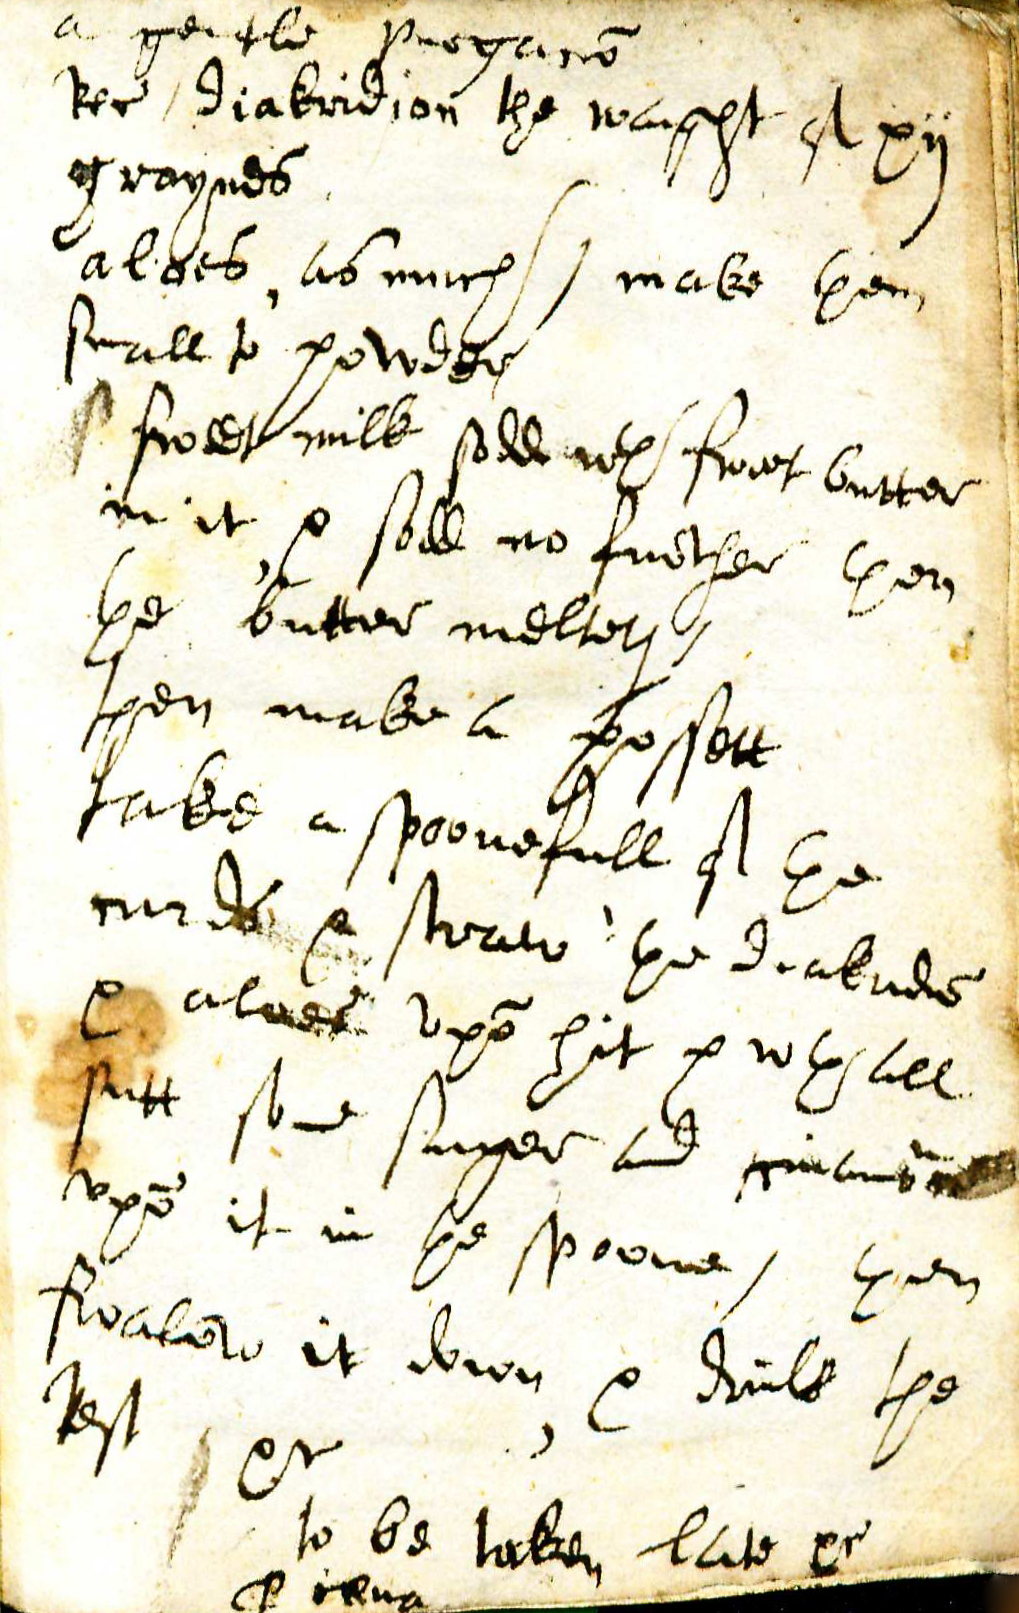 a gentle purgacō
Rec / diakridion the waight of xij
graynes
aloes, as much / make þem
small to powder
sweet milk sodd wth sweet butter
in it, & sodd no further þen
þe butter melteþ /
then make a possett
take a spoonefull of þe
curds & straw þe diakridiō
& aloes vpō hit & wth all
putt some suger and sinamōn
vpō it in þe spoone / þen
swalow it down, & drink the
Rest, &c
to be taken late &c